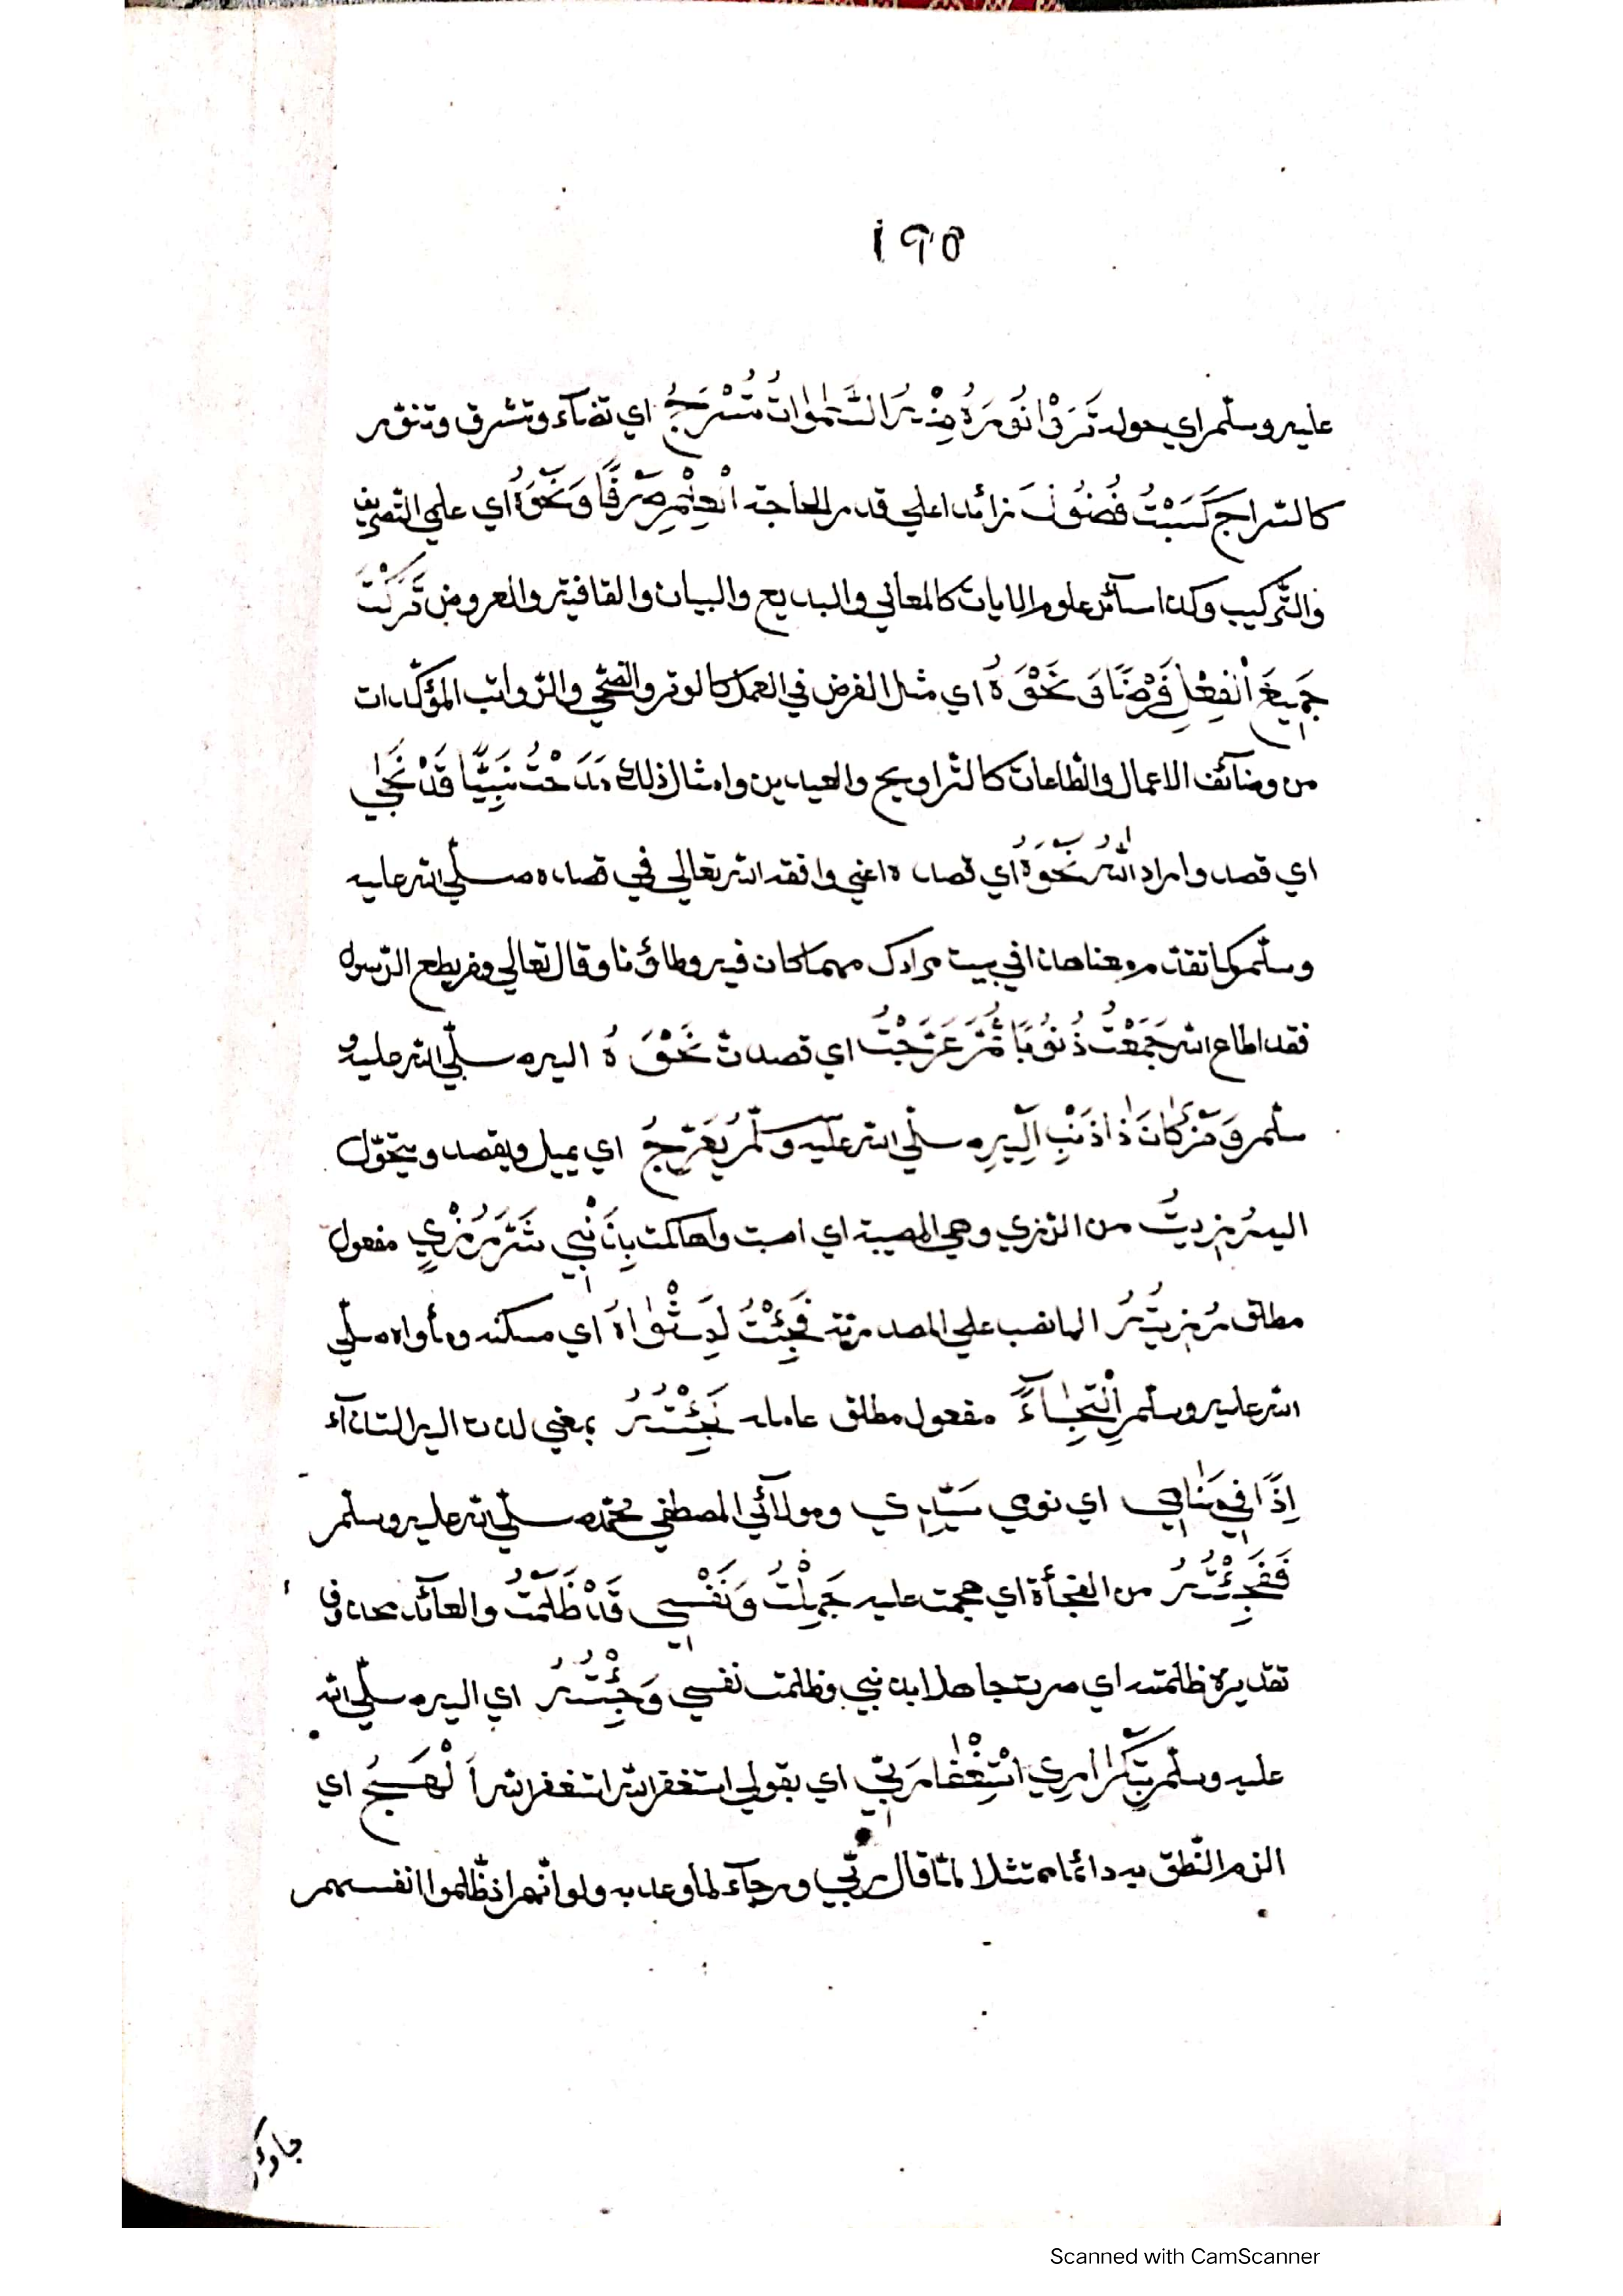 ١٩٥
عليه وسلّم اي حوله تَرَوْا نُورَهُ مِنْهُ السَّمٰوَاتُ تُسْرَجُ اي تضآء وتشرق وتنوّر
كالسّراج كَسَبْتُ فُضُولَ زائدا علي قدر الحاجة الْعِلْمِ صَرْفًا وَنَحْوَهُ اي علمي التّصريف
والتّركيب وكذا سآئر علوم الايات كالمعاني والبديع والبيان والقافية والعروض تَرَكْتُ
جَمِيعَ الْفِعْلِ فَرْضًا وَنَحْوَهُ اي مثل الفرض في العمل كالوتر والضّحي والرّواتب المؤكّدات
من وضآئف الاعمال والطّاعات كالتّراويح والعيدين وامثال ذلك مَدَحْتُ نَبِيًّا قَدْ نَحٰي
اي قصد واراد اللّٰهُ نَحْوَهُ اي قصده اعني وافقه الله تعالي في قصده صلّي الله عليه
وسلّم كما تقدّم معنا هذا في بيت مرادك مهما كان فيه وطاؤنا وقال تعالي ومن يطع الرّسول
فقد اطاع الله جَمَعْتُ ذُنُوبًا ثُمَّ عَرَّجْتُ اي قصدت نَحْوَهُ اليه صلّي الله عليه و
سلّم وَمَنْ كَانَ ذَا ذَنْبٍ اِلَيْهِ صلّي الله عليه وسلّم يُعَرِّجُ اي يميل ويقصد ويتحوّل
اليه رُزِيتُ من الرّزي وهي المصيبة اي اصبت واهلكت بِذَنْبِي شَرَّ رُزْيٍ مفعول
مطلق رُزِيتُهُ الها نصب علي المصدريّة فَجِئْتُ لَدٰي مَثْوٰاهُ اي مسكنه ومأواه صلّي
الله عليه وسلّم اِلْتِجَاءً مفعول مطلق عامله نَجِئْتُهُ بمعني لذت اليه التذآء
اِذًا فِي مَنَامِي اي نومي سَيِّدِي ومولآئي المصطفي محمّد صلّي الله عليه وسلّم
فَفَجِئْتُهُ من الفجأة اي هجمت عليه جَهِلْتُ وَنَفْسِي قَدْ ظَلَمْتُ والعآئد محذوف
تقديره ظلمته اي صرت جاهلا بذنبي وظلمت نفسي وَجِئْتُهُ اي اليه صلّي الله
عليه وسلّم بِتَكْرَارِي اسْتِغْفَارَ رَبِّي اي بقولي استغفر الله استغفر الله أَلْهَجُ اي
الزم النّطق به دائما ممتثلا لما قال ربّي ورجآء لما وعد به ولو انّهم اذ ظّلموا انفسهم
جاؤك
Scanned with CamScanner